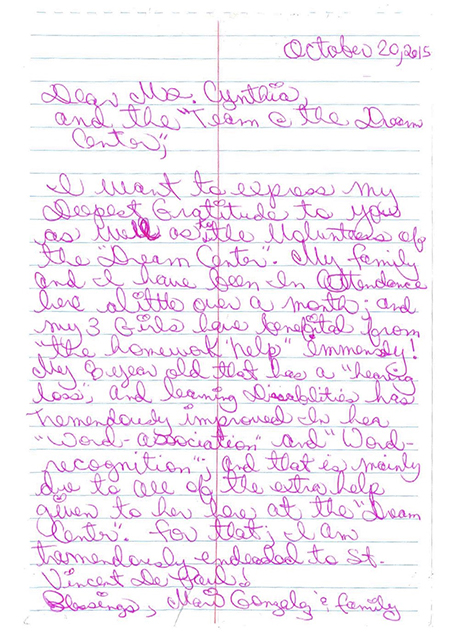 October 20, 2015
Dear Ms. Cynthia,
and the "Team @ the Dream
Center",
I want to express my
Deepest Gratitude to you
as well as the Volunteers of
the "Dream Center". My family
and I have been in Attendance
here a little over a month; and
my 3 Girls have benefited from
"the homework help" immensly!
My 8 year old that has a "hearing
loss", and learning Disabilities has
tremendously improved in her
"Word-association" and "Word-
recognition"; and that is mainly
due to all of the extra help
given to her here at the "Dream
Center". For that; I am
tramendously endeaded to St.
Vincent De Paul!
Blessings, Mari Gonzalez & family